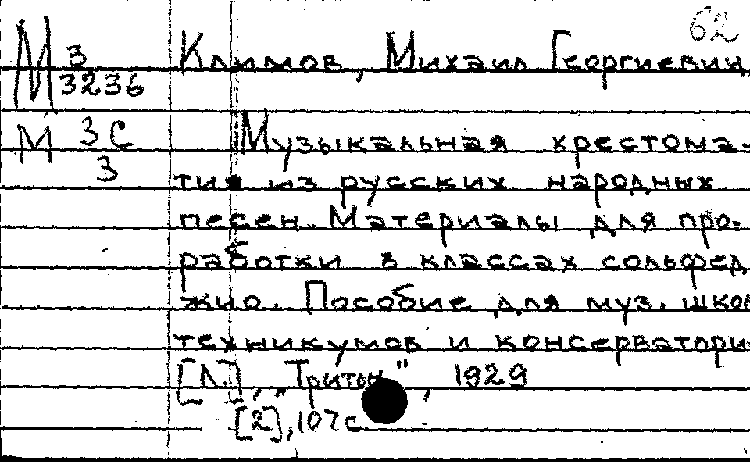 62
М 3/3236 Климов, Михаил Георгиевич,
М 3С/3 Музыкальная крестома-
тия из русских народных
песен. Материалы для про-
работки в классах сольфед
жио. Пособие для муз. школ
техникумов и консерватори
[Л.], „Тритон", 1929
[2], 107 с